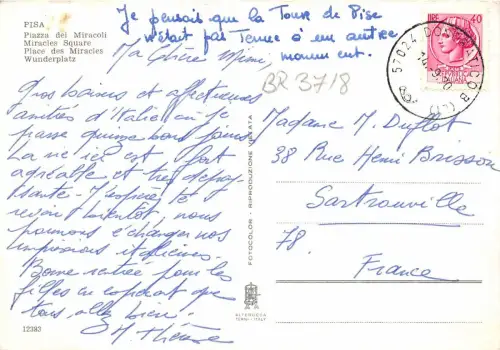 PISA
Piazza dei Miracoli
Miracles Square
Place des Miracles
Wunderplatz
Je pensais que la Tour de Pise
n'était pas Tenue à un autre
monument.
Ma Chère Mimi,
BR 3718
Gros baisers et affectueuses
amitiés d'Italie où je
passe quinze bons jours.
La vie ici est fort
agréable et très dépay
sante. J'espère te
revoir bientôt nous
pourrons échanger nos
impressions italiennes.
Bonne rentrée pour les
filles en espérant que
tous allez bien.
M Thérèse
12383
FOTOCOLOR - RIPRODUZIONE VIETATA
ALTEROCCA
TERNI - ITALY
LIRE 40
57024
Madame M. Duflot
38 Rue Henri Brisson
Sartrouville
78.
France